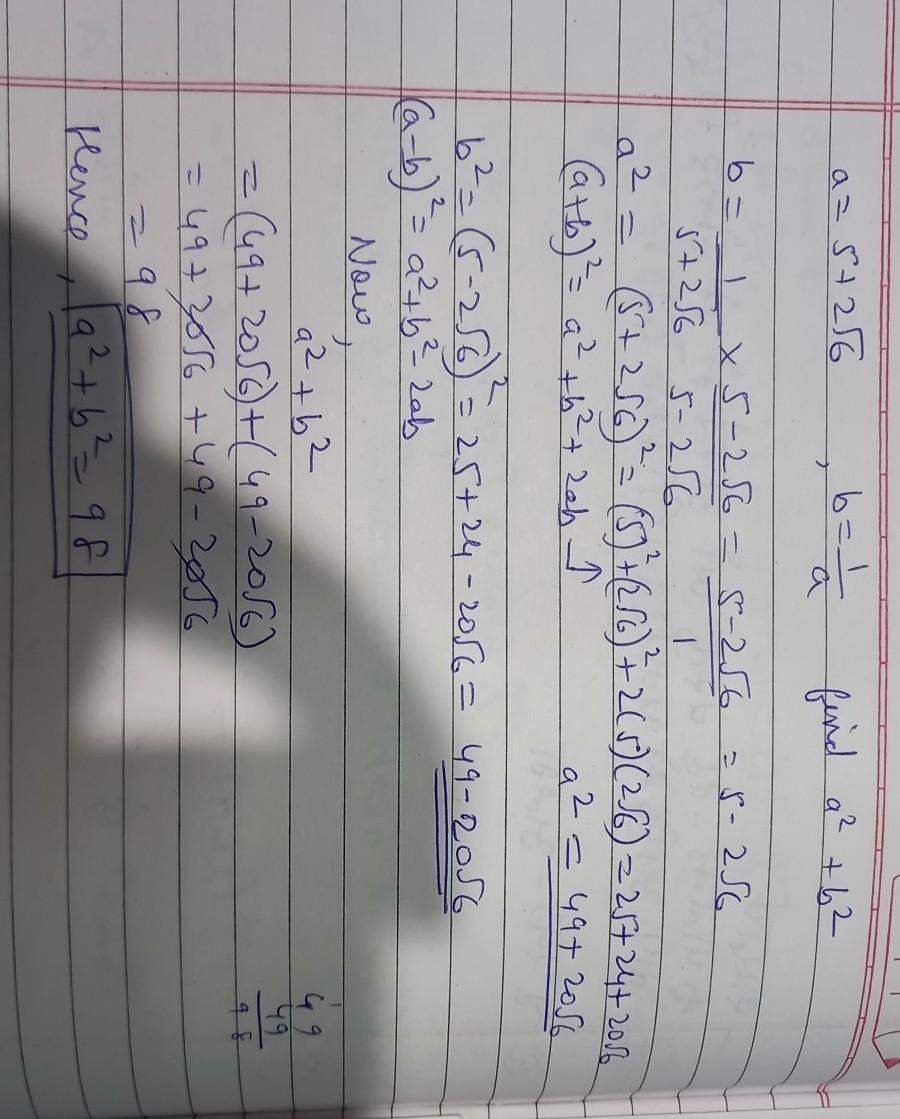 a = 5+2√6 , b = 1/a find a² + b²
b = 1/5+2√6 × 5-2√6/5-2√6 = 5-2√6/1 = 5-2√6
a² = (5+2√6)² = (5)²+(2√6)²+2(5)(2√6) = 25+24+20√6
(a+b)² = a²+b²+2ab ↑ a² = 49+20√6
b² = (5-2√6)² = 25+24-20√6 = 49-20√6
(a-b)² = a²+b²-2ab
Now,
a²+b²
= (49+20√6)+(49-20√6)
= 49+20√6+49-20√6
= 98
Hence, a²+b² = 98
1
49
49
98